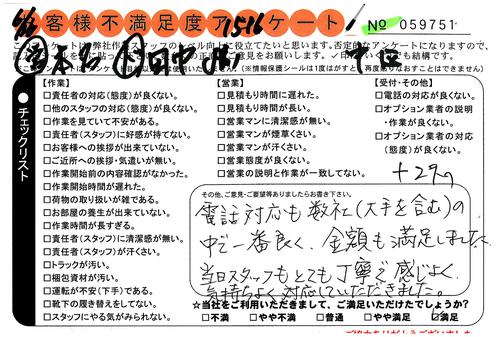 お客様不満足度アンケート
1516
№ 059751
このアンケートは弊社作業スタッフのレベル向上に役立てたいと思います。否定的なアンケートになりますので、
(※情報保護シールは1度はがすと再度貼りなおすことはできません)
チェックリスト
【作業】
□責任者の対応(態度)が良くない。
□他のスタッフの対応(態度)が良くない。
□作業を見ていて不安がある。
□責任者(スタッフ)に好感が持てない。
□お客様への挨拶が出来ていない。
□ご近所への挨拶・気遣いが無い。
□作業開始前の内容確認がなかった。
□作業開始時間が遅れた。
□荷物の取り扱いが雑である。
□お部屋の養生が出来ていない。
□作業時間が長すぎる。
□責任者(スタッフ)に清潔感が無い。
□責任者(スタッフ)が汗くさい。
□トラックが汚い。
□梱包資材が汚い。
□運転が不安(下手)である。
□靴下の履き替えをしてない。
□スタッフにやる気がみられない。
【営業】
□見積もり時間に遅れた。
□見積もり時間が長い。
□営業マンに清潔感が無い。
□営業マンが煙草くさい。
□営業マンが汗くさい。
□営業態度が良くない。
□営業の説明と作業が一致してない。
【受付・その他】
□電話の対応が良くない。
□オプション業者の説明
・作業が良くない。
□オプション業者の対応
(態度)が良くない。
その他、ご意見・ご要望等ありましたらお書き下さい。
電話対応も数社(大手を含む)の
中で一番良く、金額も満足しました。
当日スタッフもとても丁寧で感じよく、
気持ちよく対応していただきました。
★当社をご利用いただきまして、ご満足いただけたでしょうか?
□不満 □やや不満 □普通 □やや満足 □満足
ご協力ありがとうございました